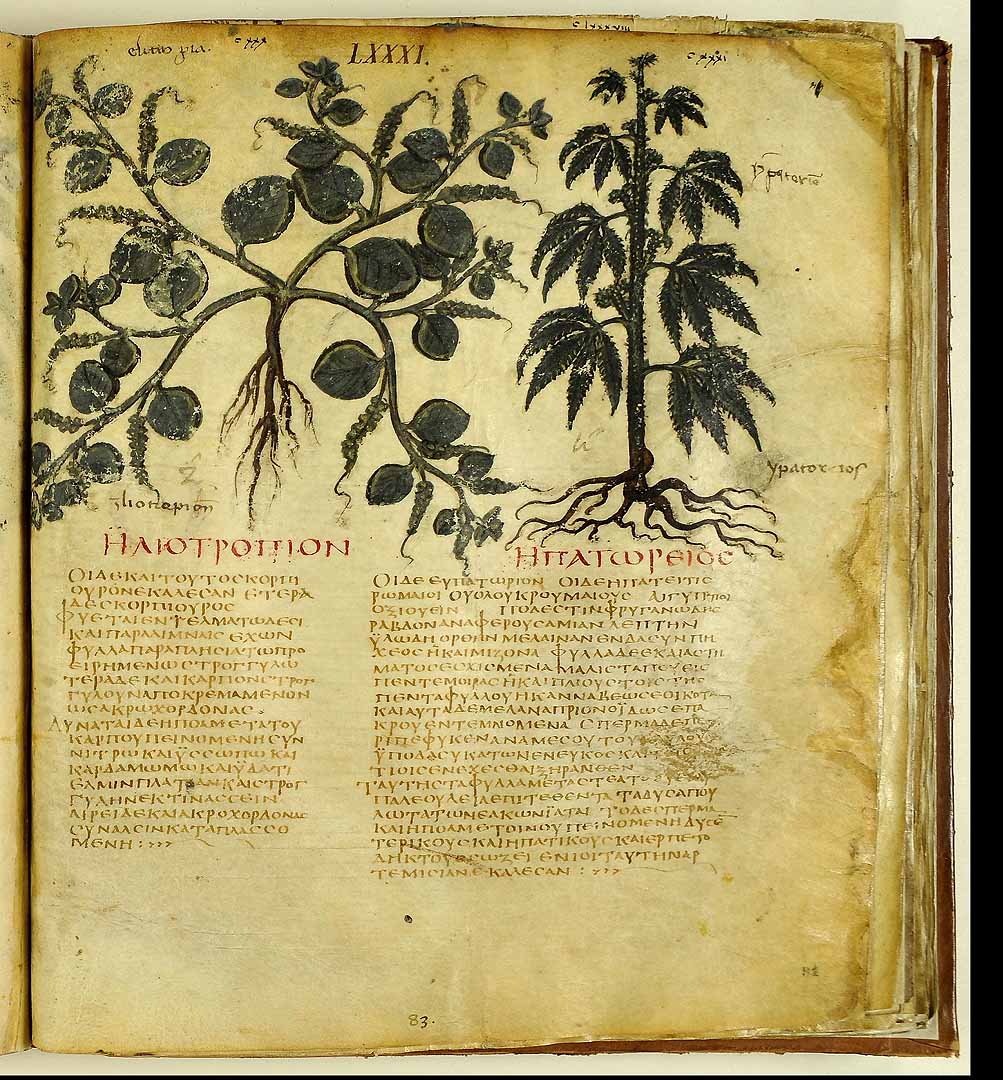 LXXXI.
ΗΛΙΟΤΡΟΠΙΟΝ
ΟΙΔΕΚΑΙΤΟΥΤΟΣΚΟΡΠΙ
ΟΥΡΟΝΕΚΑΛΕΣΑΝ ΕΤΕΡΑ
ΔΕΣΚΟΡΠΙΟΥΡΟΣ
ΦΥΕΤΑΙΕΝΤΕΛΜΑΤΩΔΕΣΙ
ΚΑΙΠΑΡΑΛΙΜΝΑΙΣ ΕΧΩΝ
ΦΥΛΛΑΠΑΡΑΠΛΗΣΙΑΤΩΠΡΟ
ΕΙΡΗΜΕΝΩΣΤΡΟΓΓΥΛΩ
ΤΕΡΑΔΕΚΑΙΚΑΡΠΟΝΣΤΡΟΓ
ΓΥΛΟΥΝΑΠΟΚΡΕΜΑΜΕΝΟΝ
ΩΣΑΚΡΩΧΟΡΔΟΝΑΣ
ΔΥΝΑΤΑΙΔΕΗΠΟΑΜΕΤΑΤΟΥ
ΚΑΡΠΟΥΠΕΙΝΟΜΕΝΗΣΥΝ
ΝΙΤΡΩΚΑΙΫΣΣΩΠΩΚΑΙ
ΚΑΡΔΑΜΩΜΩΚΑΙΫΔΑΤΙ
ΕΛΜΙΝΠΛΑΤΙΑΝΚΑΙΣΤΡΟΓ
ΓΥΛΗΝΕΚΤΙΝΑΣΣΕΙΝ
ΑΙΡΕΙΔΕΚΑΙΑΚΡΟΧΟΡΔΟΝΑΣ
ΣΥΝΑΛΣΙΝΚΑΤΑΠΛΑΣΣΟ
ΜΕΝΗ :
ΗΠΑΤΩΡΕΙΟΣ
ΟΙΔΕ ΕΥΠΑΤΩΡΙΟΝ ΟΙΔΕΗΠΑΤΕΙΤΙΣ
ΡΩΜΑΙΟΙ ΟΥΟΛΟΥΚΡΟΥΜΑΙΟΥΣ ΑΙΓΥΠΤΙΟΙ
ΟΞΙΟΥΕΙΝ ΠΟΑΕΣΤΙΝΦΡΥΓΑΝΩΔΗΣ
ΡΑΒΔΟΝΑΝΑΦΕΡΟΥΣΑΜΙΑΝ ΛΕΠΤΗΝ
ΫΛΩΔΗ ΟΡΘΗΝ ΜΕΛΑΙΝΑΝ ΕΝΔΑΣΥΝ ΠΗ
ΧΕΟΣ Η ΚΑΙΜΙΖΟΝΑ ΦΥΛΛΑΔΕΕΚΔΙΑΣΤΗ
ΜΑΤΟΣΕΣΧΙΣΜΕΝΑ ΜΑΛΙΣΤΑΠΩΣΕΙΣ
ΠΕΝΤΕΜΟΙΡΑΣ Η ΚΑΙ ΠΛΙΟΥΣΤΟΙΣΤΗΣ
ΠΕΝΤΑΦΥΛΛΟΥΗΚΑΝΝΑΒΕΩΣΕΟΙΚΟΤΑ
ΚΑΙΑΥΤΑΔΕΜΕΛΑΝΑΠΡΙΟΝΟΪΔΩΣΕΠΑ
ΚΡΟΥΕΝΤΕΜΝΟΜΕΝΑ ΣΠΕΡΜΑΔΕ
ΤΑΥΤΗΣΤΑΦΥΛΛΑΜΕΤΑΣΤΕΑΤΟΣ
ΠΑΛΕΟΥΛΕΙΑΕΠΙΤΕΘΕΝΤΑ ΤΑΔΥΣΑΠΟΥ
ΛΩΤΑΤΩΝΕΛΚΩΝΪΑΤΑΙ ΤΟΔΕΣΠΕΡΜΑ
ΚΑΙΗΠΟΑΜΕΤΟΙΝΟΥ ΠΕΙΝΟΜΕΝΗΔΥΣΕΝ
ΤΕΡΙΚΟΥΣΚΑΙΗΠΑΤΙΚΟΥΣΚΑΙΕΡΠΕΤΟ
ΔΗΚΤΟΥΣΣΩΖΕΙ ΕΝΙΟΙΤΑΥΤΗΝΑΡ
ΤΕΜΙΣΙΑΝΕΚΑΛΕΣΑΝ :
83.